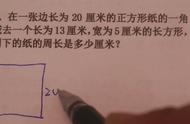 在一张边长为 20 厘米的正方形纸的一角
去一个长为 13 厘米,宽为 5 厘米的长方形,
下的纸的周长是多少厘米?
20